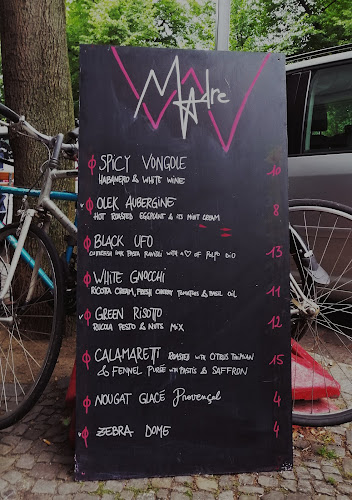 Madre
SPICY VONGOLE 10
HABANERO & WHITE WINE
OLEK AUBERGINE 8
HOT ROASTED EGGPLANT & ITS MINT CREAM
BLACK UFO 13
CUTTLEFISH INK PASTA RAVIOLI WITH A ♡ OF POLPO DIO
WHITE GNOCCHI 11
RICOTA CREAM, FRESH CHERRY TOMATOES & BASIL OIL
GREEN RISOTTO 12
RUCOLA PESTO & NUTS MIX
CALAMARETTI ROASTED WITH CITRUS 15
& FENNEL PURÉE WITH PASTIS & SAFFRON
NOUGAT GLACÉ Provençal 4
ZEBRA DOME 4